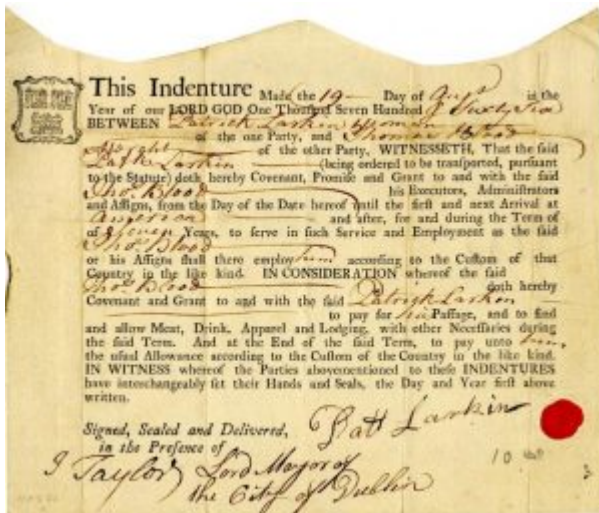 This Indenture Made the 19 Day of Augst in the
Year of our LORD GOD One Thousand Seven Hundred & Sixty Six
BETWEEN Patrick Larkin Yeoman
of the one Party, and Thomas Blood
of the other Party, WITNESSETH, That the said
Larkin (being ordered to be transported, pursuant
to the Statute) doth hereby Covenant, Promise and Grant to and with the said
Thos. Blood his Executors, Administrators
and Assigns, from the Day of the Date hereof until the first and next Arrival at
America and after, for and during the Term of
of Seven Years, to serve in such Service and Employment as the said
Thos. Blood
or his Assigns shall there employ him according to the Custom of that
Country in the like kind. IN CONSIDERATION whereof the said
Thos. Blood doth hereby
Covenant and Grant to and with the said Patrick Larkin
to pay for his Passage, and to find
and allow Meat, Drink, Apparel and Lodging, with other Necessaries during
the said Term. And at the End of the said Term, to pay unto him,
the usual Allowance according to the Custom of the Country in the like kind.
IN WITNESS whereof the Parties abovementioned to these INDENTURES
have interchangeably set their Hands and Seals, the Day and Year first above
written.
Signed, Sealed and Delivered,
in the Presence of
Patt Larkin
J Taylor Lord Mayor of
the City of Dublin
10